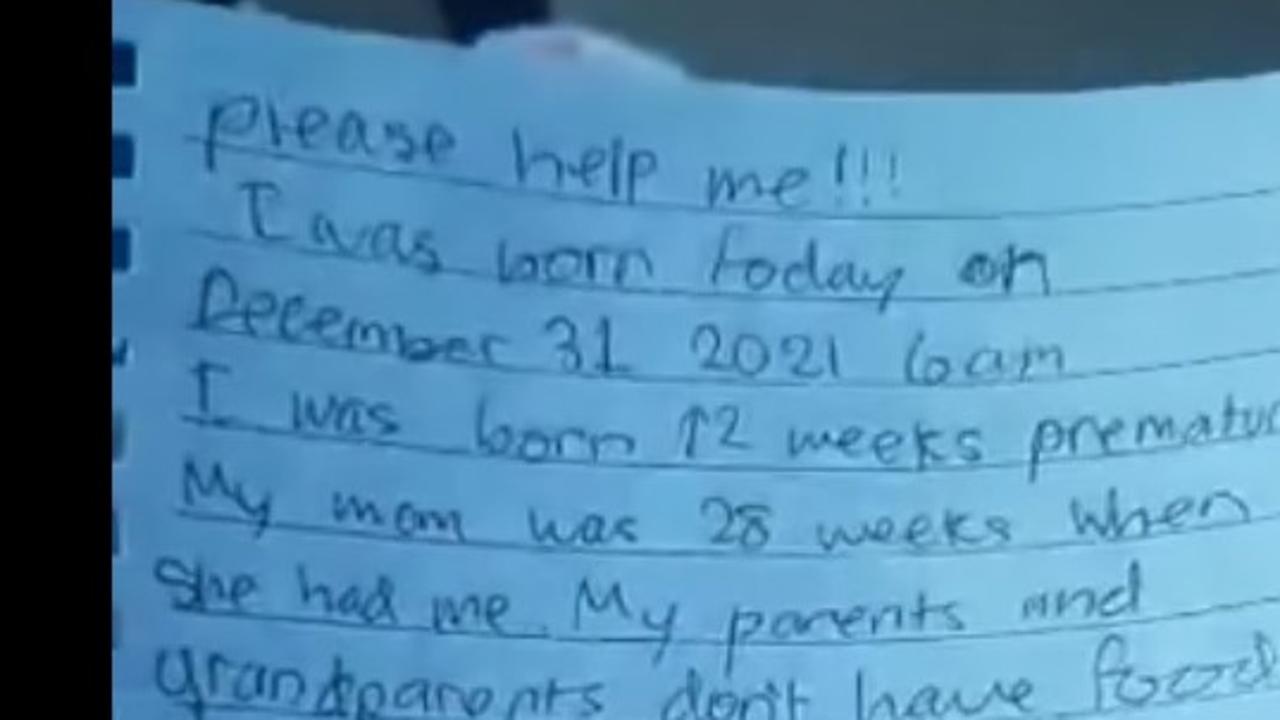 please help me!!!
I was born today on
December 31 2021 6am
I was born 12 weeks prematur
My mom was 28 weeks when
she had me. My parents and
grandparents don't have food